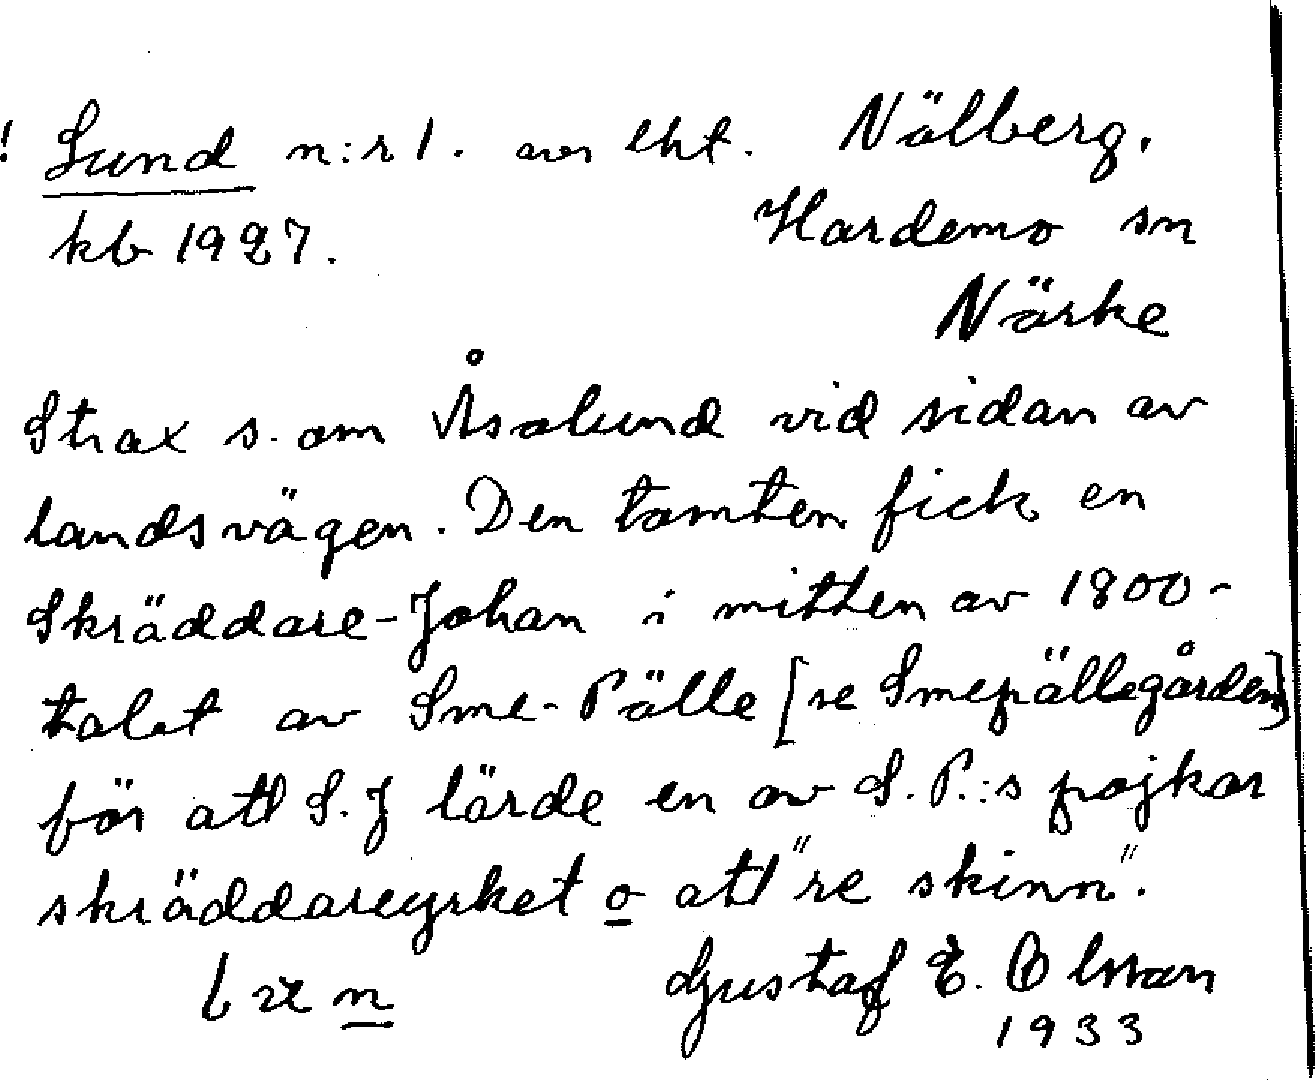 ! Sund n:r 1. avs lht. Nälberg,
kb 1927. Hardemo sn
Närke
Strax s. om Åsalund vid sidan av
landsvägen. Den tomten fick en
Skräddare-Johan i mitten av 1800-
talet av Sme-Pälle [se Smepällegården]
för att S.J lärde en av S.P.:s pojkar
skräddareyrket o att "re skinn".
Gustaf E. Olsson
1933